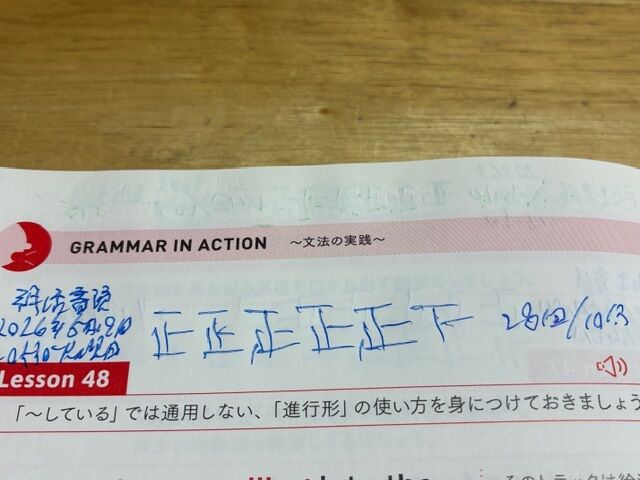 GRAMMAR IN ACTION 〜文法の実践〜
2026年6月9日
正正正正正下 28回/10分
Lesson 48
「〜している」では通用しない、「進行形」の使い方を身につけておきましょう